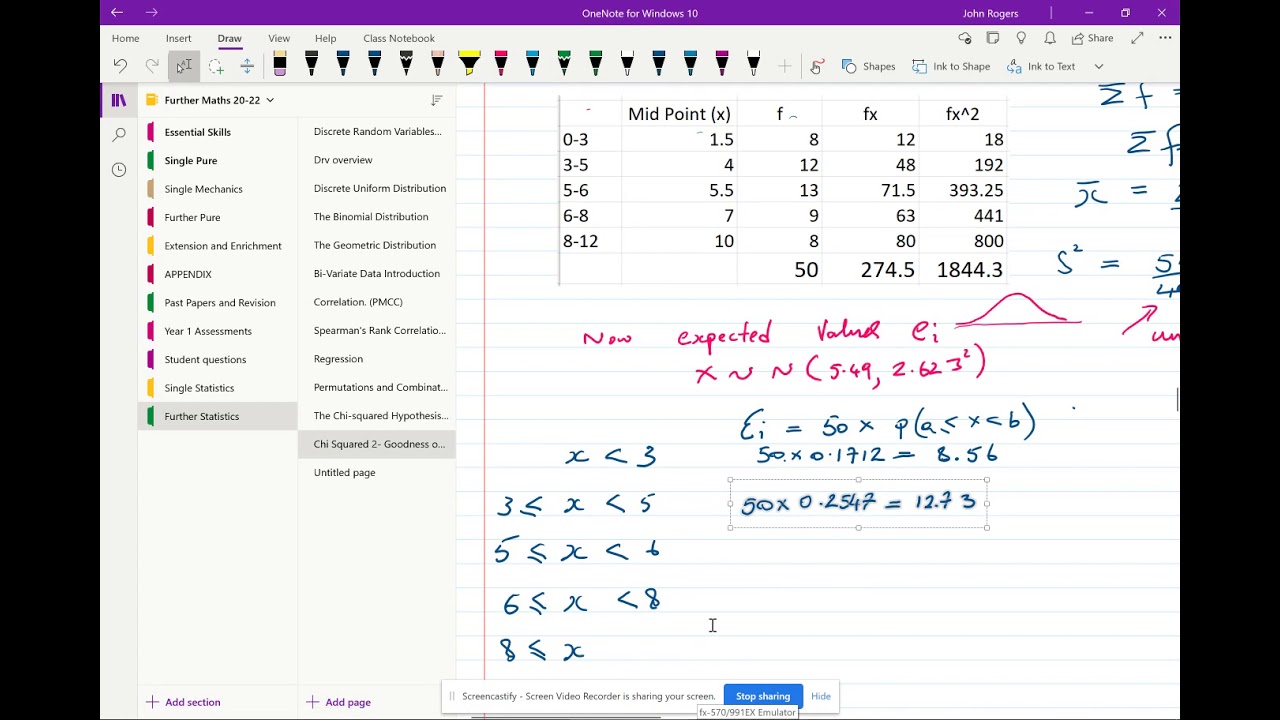 OneNote for Windows 10
John Rogers
Home Insert Draw View Help Class Notebook
Share
Shapes Ink to Shape Ink to Text
Further Maths 20-22
Essential Skills
Single Pure
Single Mechanics
Further Pure
Extension and Enrichment
APPENDIX
Past Papers and Revision
Year 1 Assessments
Student questions
Single Statistics
Further Statistics
Add section
Discrete Random Variables...
Drv overview
Discrete Uniform Distribution
The Binomial Distribution
The Geometric Distribution
Bi-Variate Data Introduction
Correlation. (PMCC)
Spearman's Rank Correlatio...
Regression
Permutations and Combinat...
The Chi-squared Hypothesis...
Chi Squared 2- Goodness o...
Untitled page
Add page
Mid Point (x) f fx fx^2
0-3 1.5 8 12 18
3-5 4 12 48 192
5-6 5.5 13 71.5 393.25
6-8 7 9 63 441
8-12 10 8 80 800
50 274.5 1844.3
Σf =
Σf
x̄ =
S² =
Now expected values ei
X ~ N(5.49, 2.623²)
Ei = 50 × p(a ≤ x < b)
x < 3 50 × 0.1712 = 8.56
3 ≤ x < 5 50 × 0.2547 = 12.73
5 ≤ x < 6
6 ≤ x < 8
8 ≤ x
Screencastify - Screen Video Recorder is sharing your screen. Stop sharing Hide
fx-570/991EX Emulator